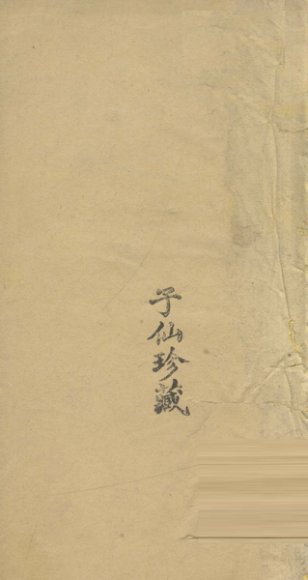 子仙珍藏